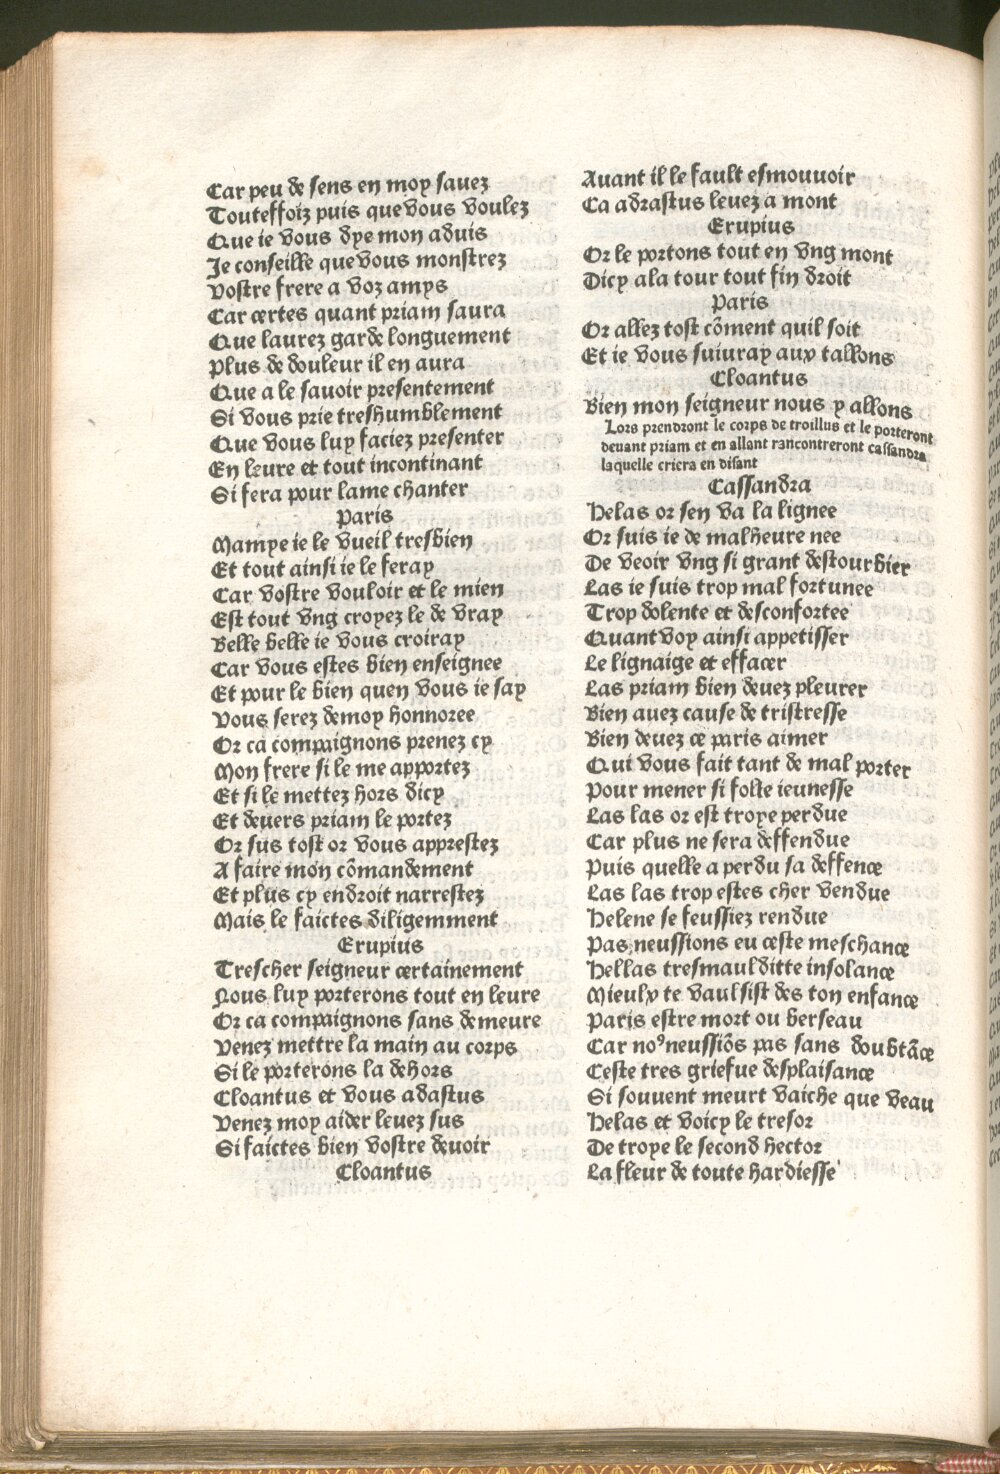 Car peu de sens en moy savez
Touteffoiz puis que vous voulez
Que ie vous dye mon aduis
Je conseille que vous monstrez
Vostre frere a voz amys
Car certes quant priam saura
Que laurez garde longuement
Plus de douleur il en aura
Que a le savoir presentement
Si vous prie treshumblement
Que vous luy faciez presenter
En leure et tout incontinant
Si fera pour lame chanter
Paris
Mamye ie le vueil tresbien
Et tout ainsi ie le feray
Car vostre vouloir et le mien
Est tout vng croyez le de vray
Belle belle ie vous croiray
Car vous estes bien enseignee
Et pour le bien quen vous ie say
Vous serez demoy honnoree
Or ca compaignons prenez cy
Mon frere si le me apportez
Et si le mettez hors dicy
Et deuers priam le portez
Or sus tost or vous apprestez
A faire mon cõmandement
Et plus cy endroit narrestez
Mais le faictes diligemment
Erupius
Trescher seigneur certainement
Nous luy porterons tout en leure
Or ca compaignons sans demeure
Venez mettre la main au corps
Si le porterons la dehors
Cloantus et vous adastus
Venez moy aider leuez sus
Si faictes bien vostre deuoir
Cloantus
Auant il le fault esmouuoir
Ca adrastus leuez a mont
Erupius
Or le portons tout en vng mont
Dicy ala tour tout fin droit
Paris
Or allez tost cõment quil soit
Et ie vous suiuray aux tallons
Cloantus
Bien mon seigneur nous y allons
Lors prendront le corps de troillus et le porteront
deuant priam et en allant rancontreront cassandra
laquelle criera en disant
Cassandra
Helas or sen va la lignee
Or suis ie de malheure nee
De veoir vng si grant destourbier
Las ie suis trop mal fortunee
Trop dolente et desconfortee
Quant voy ainsi appetisser
Le lignaige et effacer
Las priam bien deuez pleurer
Bien auez cause de tristresse
Bien deuez ce paris aimer
Qui vous fait tant de mal porter
Pour mener si folle ieunesse
Las las or est troye perdue
Car plus ne sera deffendue
Puis quelle a perdu sa deffence
Las las trop estes cher vendue
Helene se feussiez rendue
Pas neussions eu ceste meschance
Hellas tresmaulditte insolance
Mieulx te vaulsist des ton enfance
Paris estre mort ou berseau
Car noꝰ neussiõs pas sans doubtãce
Ceste tres griefue desplaisance
Si souuent meurt vaiche que veau
Helas et voicy le tresor
De troye le second hector
La fleur de toute hardiesse